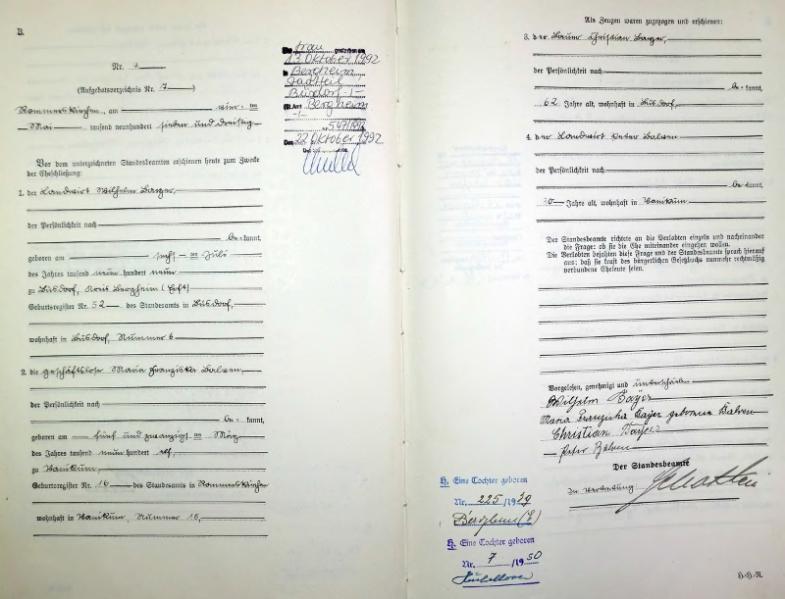 B.
Nr. 7
(Aufgebotsverzeichnis Nr. 7)
Rommerskirchen, am vier ten
Mai tausend neunhundert sieben und dreißig
Vor dem unterzeichneten Standesbeamten erschienen heute zum Zwecke
der Eheschließung:
1. der Landwirt Wilhelm
der Persönlichkeit nach
be kannt,
geboren am Juli
des Jahres tausend neun hundert neun
zu Büsdorf, Kreis Bergheim (Erft)
Geburtsregister Nr. 52 des Standesamts in Büsdorf,
wohnhaft in Büsdorf, Nummer 6
2. die geschäftslose Maria Franziska
der Persönlichkeit nach
be kannt,
geboren am fünf und zwanzigsten März
des Jahres tausend neun hundert elf,
zu Vanikum,
Geburtsregister Nr. 16 des Standesamts in Rommerskirchen
wohnhaft in Vanikum, Nummer 16,
Die Frau gestorben am
13. Oktober 1992
in Bergheim
Stadtteil
Büsdorf -/-
St.Amt Bergheim
-/-
Nr.
Den 22. Oktober 1992
Als Zeugen waren zugezogen und erschienen:
3. der Bauer Christian
der Persönlichkeit nach
be kannt,
62 Jahre alt, wohnhaft in Büsdorf,
4. der Landwirt Peter
der Persönlichkeit nach
be kannt,
70 Jahre alt, wohnhaft in Vanikum
Der Standesbeamte richtete an die Verlobten einzeln und nacheinander
die Frage: ob sie die Ehe miteinander eingehen wollen.
Die Verlobten bejahten diese Frage und der Standesbeamte sprach hierauf
aus: daß sie kraft des bürgerlichen Gesetzbuchs nunmehr rechtmäßig
verbundene Eheleute seien.
Vorgelesen, genehmigt und unterschrieben
Wilhelm
Maria Franziska geborene
Christian
Peter
Der Standesbeamte
In Vertretung
H. Eine Tochter geboren
Nr. 225/1939
H. Eine Tochter geboren
Nr. 7 /1950
H.-H.-R.